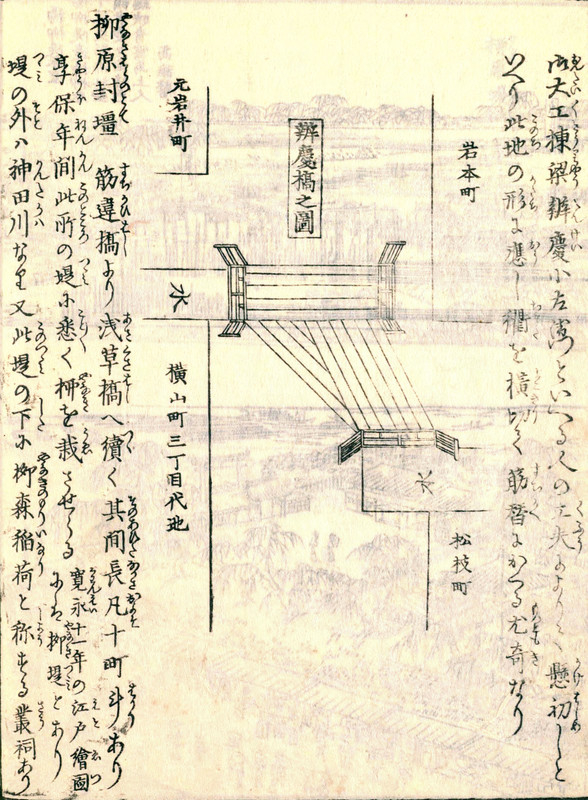 御大工棟梁辨慶小左衛門といへる人の工夫によりて懸初しと
いへり此地の形に應し衢を横切て筋替にかくる尤奇なり
岩本町
松枝町
辨慶橋之圖
水
水
元岩井町
横山町三丁目代地
柳原封壃 筋違橋より浅草橋へ續く其間長凡十町斗あり
享保年間此所の堤に悉く柳を栽させらる
寛永十一年の江戸繪圖
にも柳堤とあり
堤の外ハ神田川なり又此堤の下に柳森稲荷と称する叢祠あり